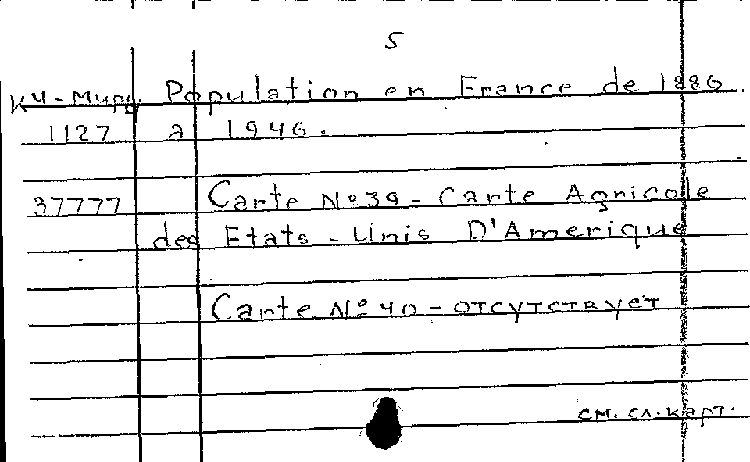 5
КЧ-Мира Population en France de 1886
1127 a 1946.
37777 Carte №39 - Carte Agricole
des Etats - Unis D'Amerique
Carte №40 - отсутствует
см. сл. карт.